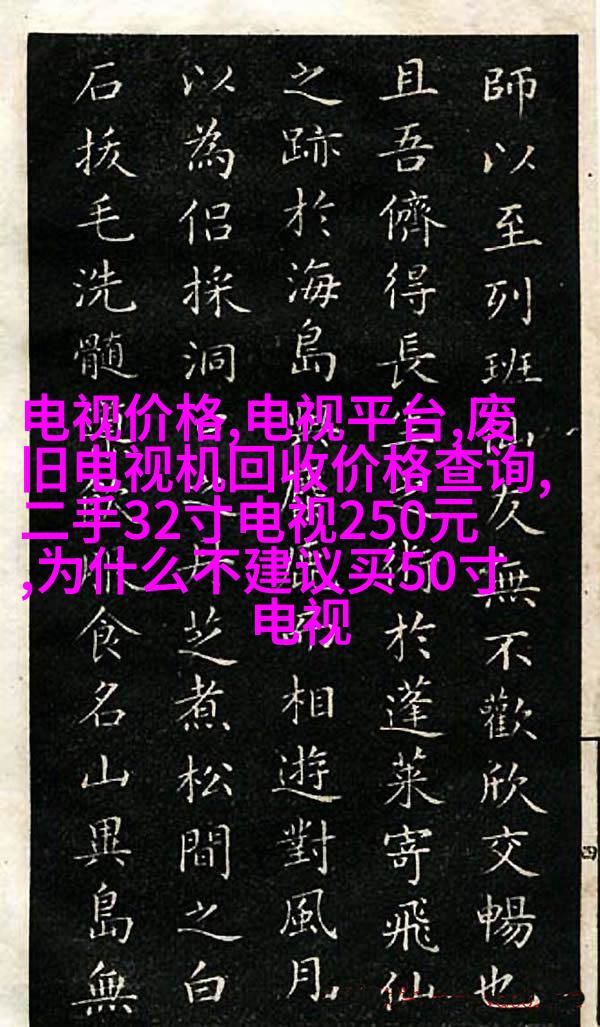 电视价格,电视平台,废
旧电视机回收价格查询,
二手32寸电视250元
,为什么不建议买50寸
电视
師以至列班仙友無不歡欣交暢也
且吾儕得長術於蓬萊寄飛仙
之跡於海島相遊對風月
以為侶採洞芝煮松間之白
石拔毛洗髓食名山異島無